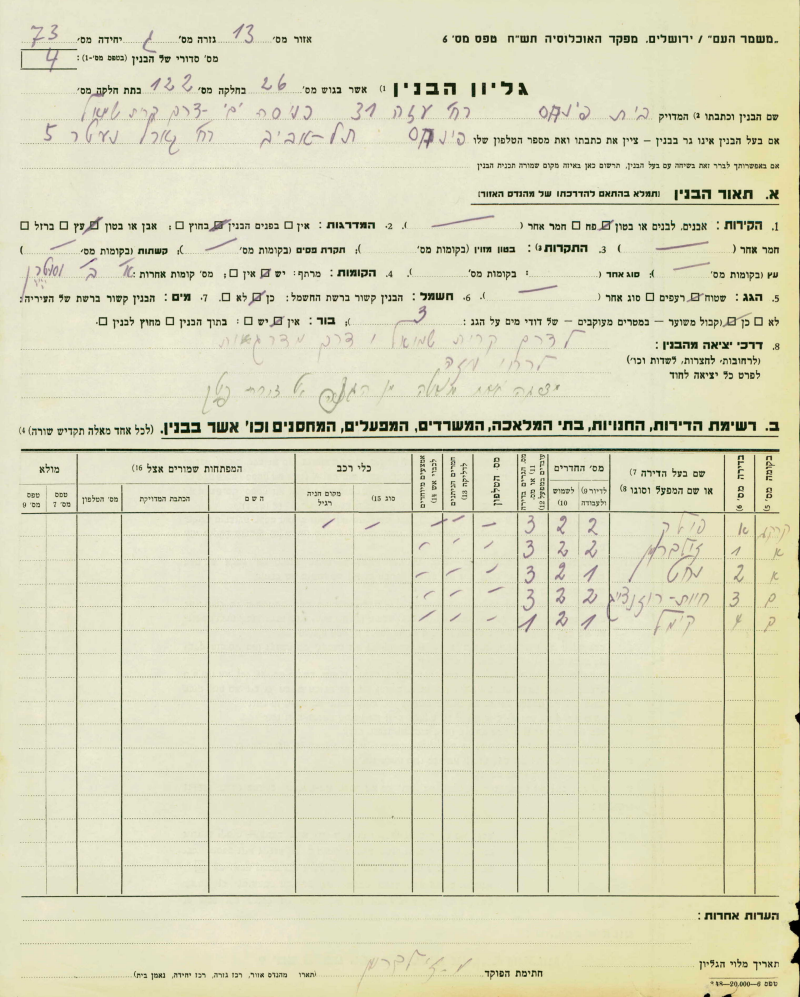 „משמר העם" / ירושלים. מפקד האוכלוסיה תש"ח טפס מס' 6 אזור מס' 13 גזרה מס' ג יחידה מס' 73
מס' סדורי של הבנין (בטפס מס'-1): 4
גליון הבנין 1) אשר בגוש מס' 26 בחלקה מס' 122 בתת חלקה מס'
שם הבנין וכתבתו 2) המדויק בית פינקס רח' עזה 31 כניסה דרך קרית שמואל
אם בעל הבנין אינו גר בבנין – ציין את כתבתו ואת מספר הטלפון שלו פינקס תל-אביב רח' 5
אם באפשרותך לברר זאת בשיחה עם בעל הבנין, תרשום כאן באיזה מקום שמורה תכנית הבנין
א. תאור הבנין (תמלא בהתאם להדרכתו של מהנדס האזור)
1. הקירות: אבנים, לבנים או בטון ☑ פח ☐ חמר אחר ( — ). 2. המדרגות: אין ☐ בפנים הבנין ☑ בחוץ ☐; אבן או בטון ☑ עץ ☐ ברזל ☐
חמר אחר ( — ) 3. התקרות 3): בטון מזוין (בקומות מס' — ); תקרת פסים (בקומות מס' — ); קשתות (בקומות מס' — )
עץ (בקומות מס' — ); סוג אחד : בקומות מס' ). 4. הקומות: מרתף: יש ☑ אין ☐; מס' קומות אחרות: א' ב'
5. הגג: שטוח ☑ רעפים ☐ סוג אחר ( — ). 6. חשמל: הבנין קשור ברשת החשמל: כן ☑ לא ☐. 7. מים: הבנין קשור ברשת של העיריה:
לא ☐ כן ☑ (קבול משוער – במטרים מעוקבים – של דודי מים על הגג: 3 ); בור: אין ☑ יש ☐: בתוך הבנין ☐ מחוץ לבנין ☐.
8. דרכי יציאה מהבנין: לדרך קרית שמואל ודרך מדרגות
(לרחובות, לחצרות, לשדות וכו') לרחוב עזה
לפרט כל יציאה לחוד
ב. רשימת הדירות, החנויות, בתי המלאכה, המשרדים, המפעלים, המחסנים וכו' אשר בבנין. (לכל אחד מאלה תקדיש שורה) 4)
בקומה מס' 5) בדירה מס' 6) שם בעל הדירה 7) או שם המפעל וסוגו 8) מס' החדרים לדיור 9) ולעבודה לשמוש 10) מס. הגרים בדירה 11) או מס. עובדים במפעל 12) מס הטלפון חמרים הניתנים לדליקה 13) אמצעים מיוחדים לכבוי אש 14) כלי רכב סוג 15) מקום חניה רגיל המפתחות שמורים אצל 16) השם הכתבה המדויקת מס' הטלפון מולא טפס מס' 7 טפס מס' 9
קרקע א פולק 2 2 3 – – – – –
א 1 זילברמן 2 2 3 – – –
א 2 1 2 3 – – –
ב 3 חיות-רוזנצויג 2 2 3 – – –
ב 4 קימל 1 2 1 – – –
הערות אחרות:
תאריך מלוי הגליון חתימת הפוקד מ. זילברמן (תארו מהנדס אזור, רכז גזרה, רכז יחידה, נאמן בית)
טפס 6–20.000–48*